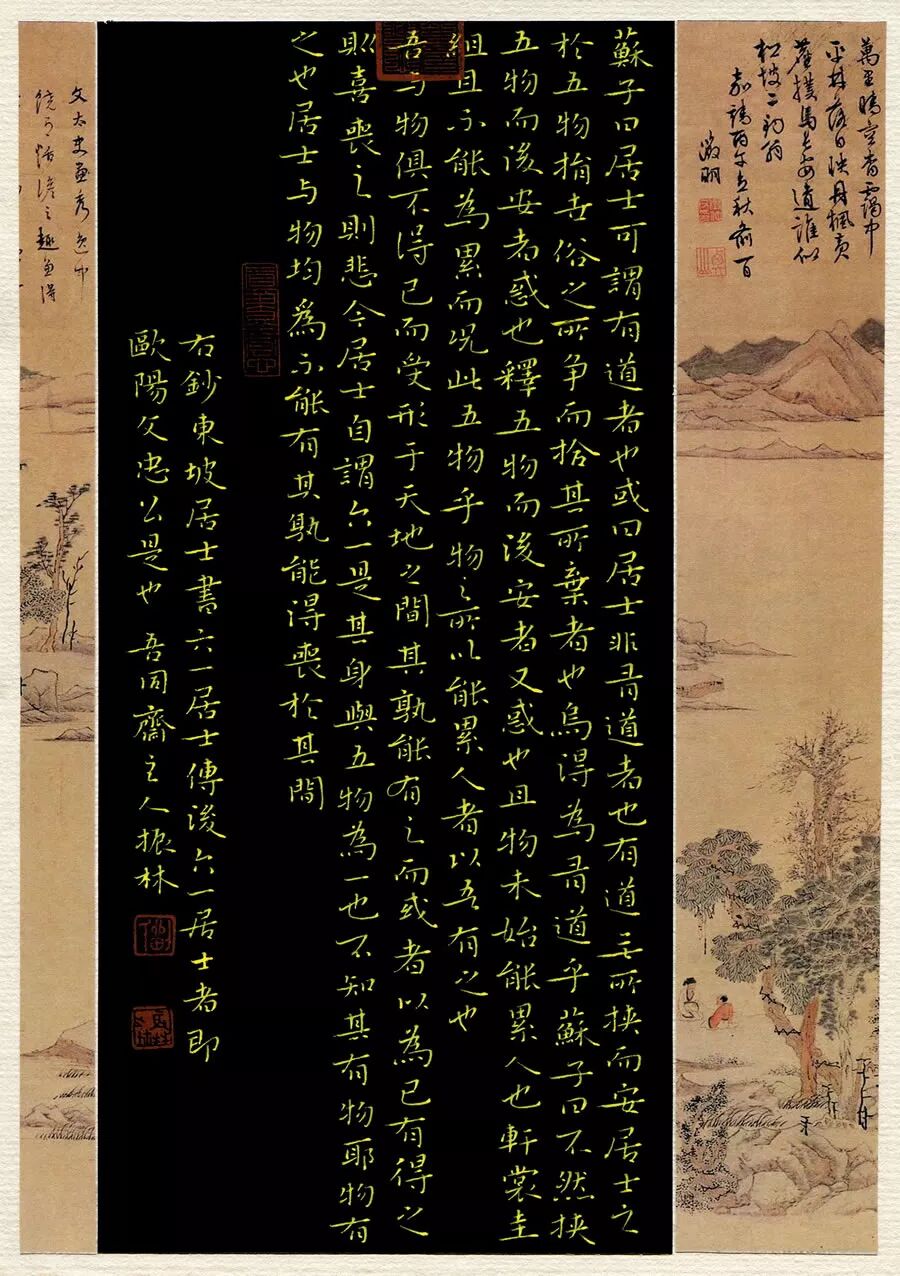 萬里晴空杳靄中
平林落日映丹楓黃
塵撲馬長安道誰似
松坡二釣翁
嘉靖丙午立秋前一日
徵明
蘇子曰居士可謂有道者也或曰居士非有道者也有道无所挾而安居士之
於五物捐世俗之所争而拾其所棄者也烏得為有道乎蘇子曰不然挾
五物而後安者惑也釋五物而後安者又惑也且物未始能累人也軒裳圭
組且不能為累而況此五物乎物之所以能累人者以吾有之也
吾与物俱不得已而受形于天地之間其孰能有之而或者以為己有得之
則喜喪之則悲今居士自謂六一是其身與五物為一也不知其有物耶物有
之也居士与物均爲不能有其孰能得喪於其間
右鈔東坡居士書六一居士傳後六一居士者即
歐陽文忠公是也 吾同齋主人振林
文太史畫秀逸中
饒有恬澹之趣